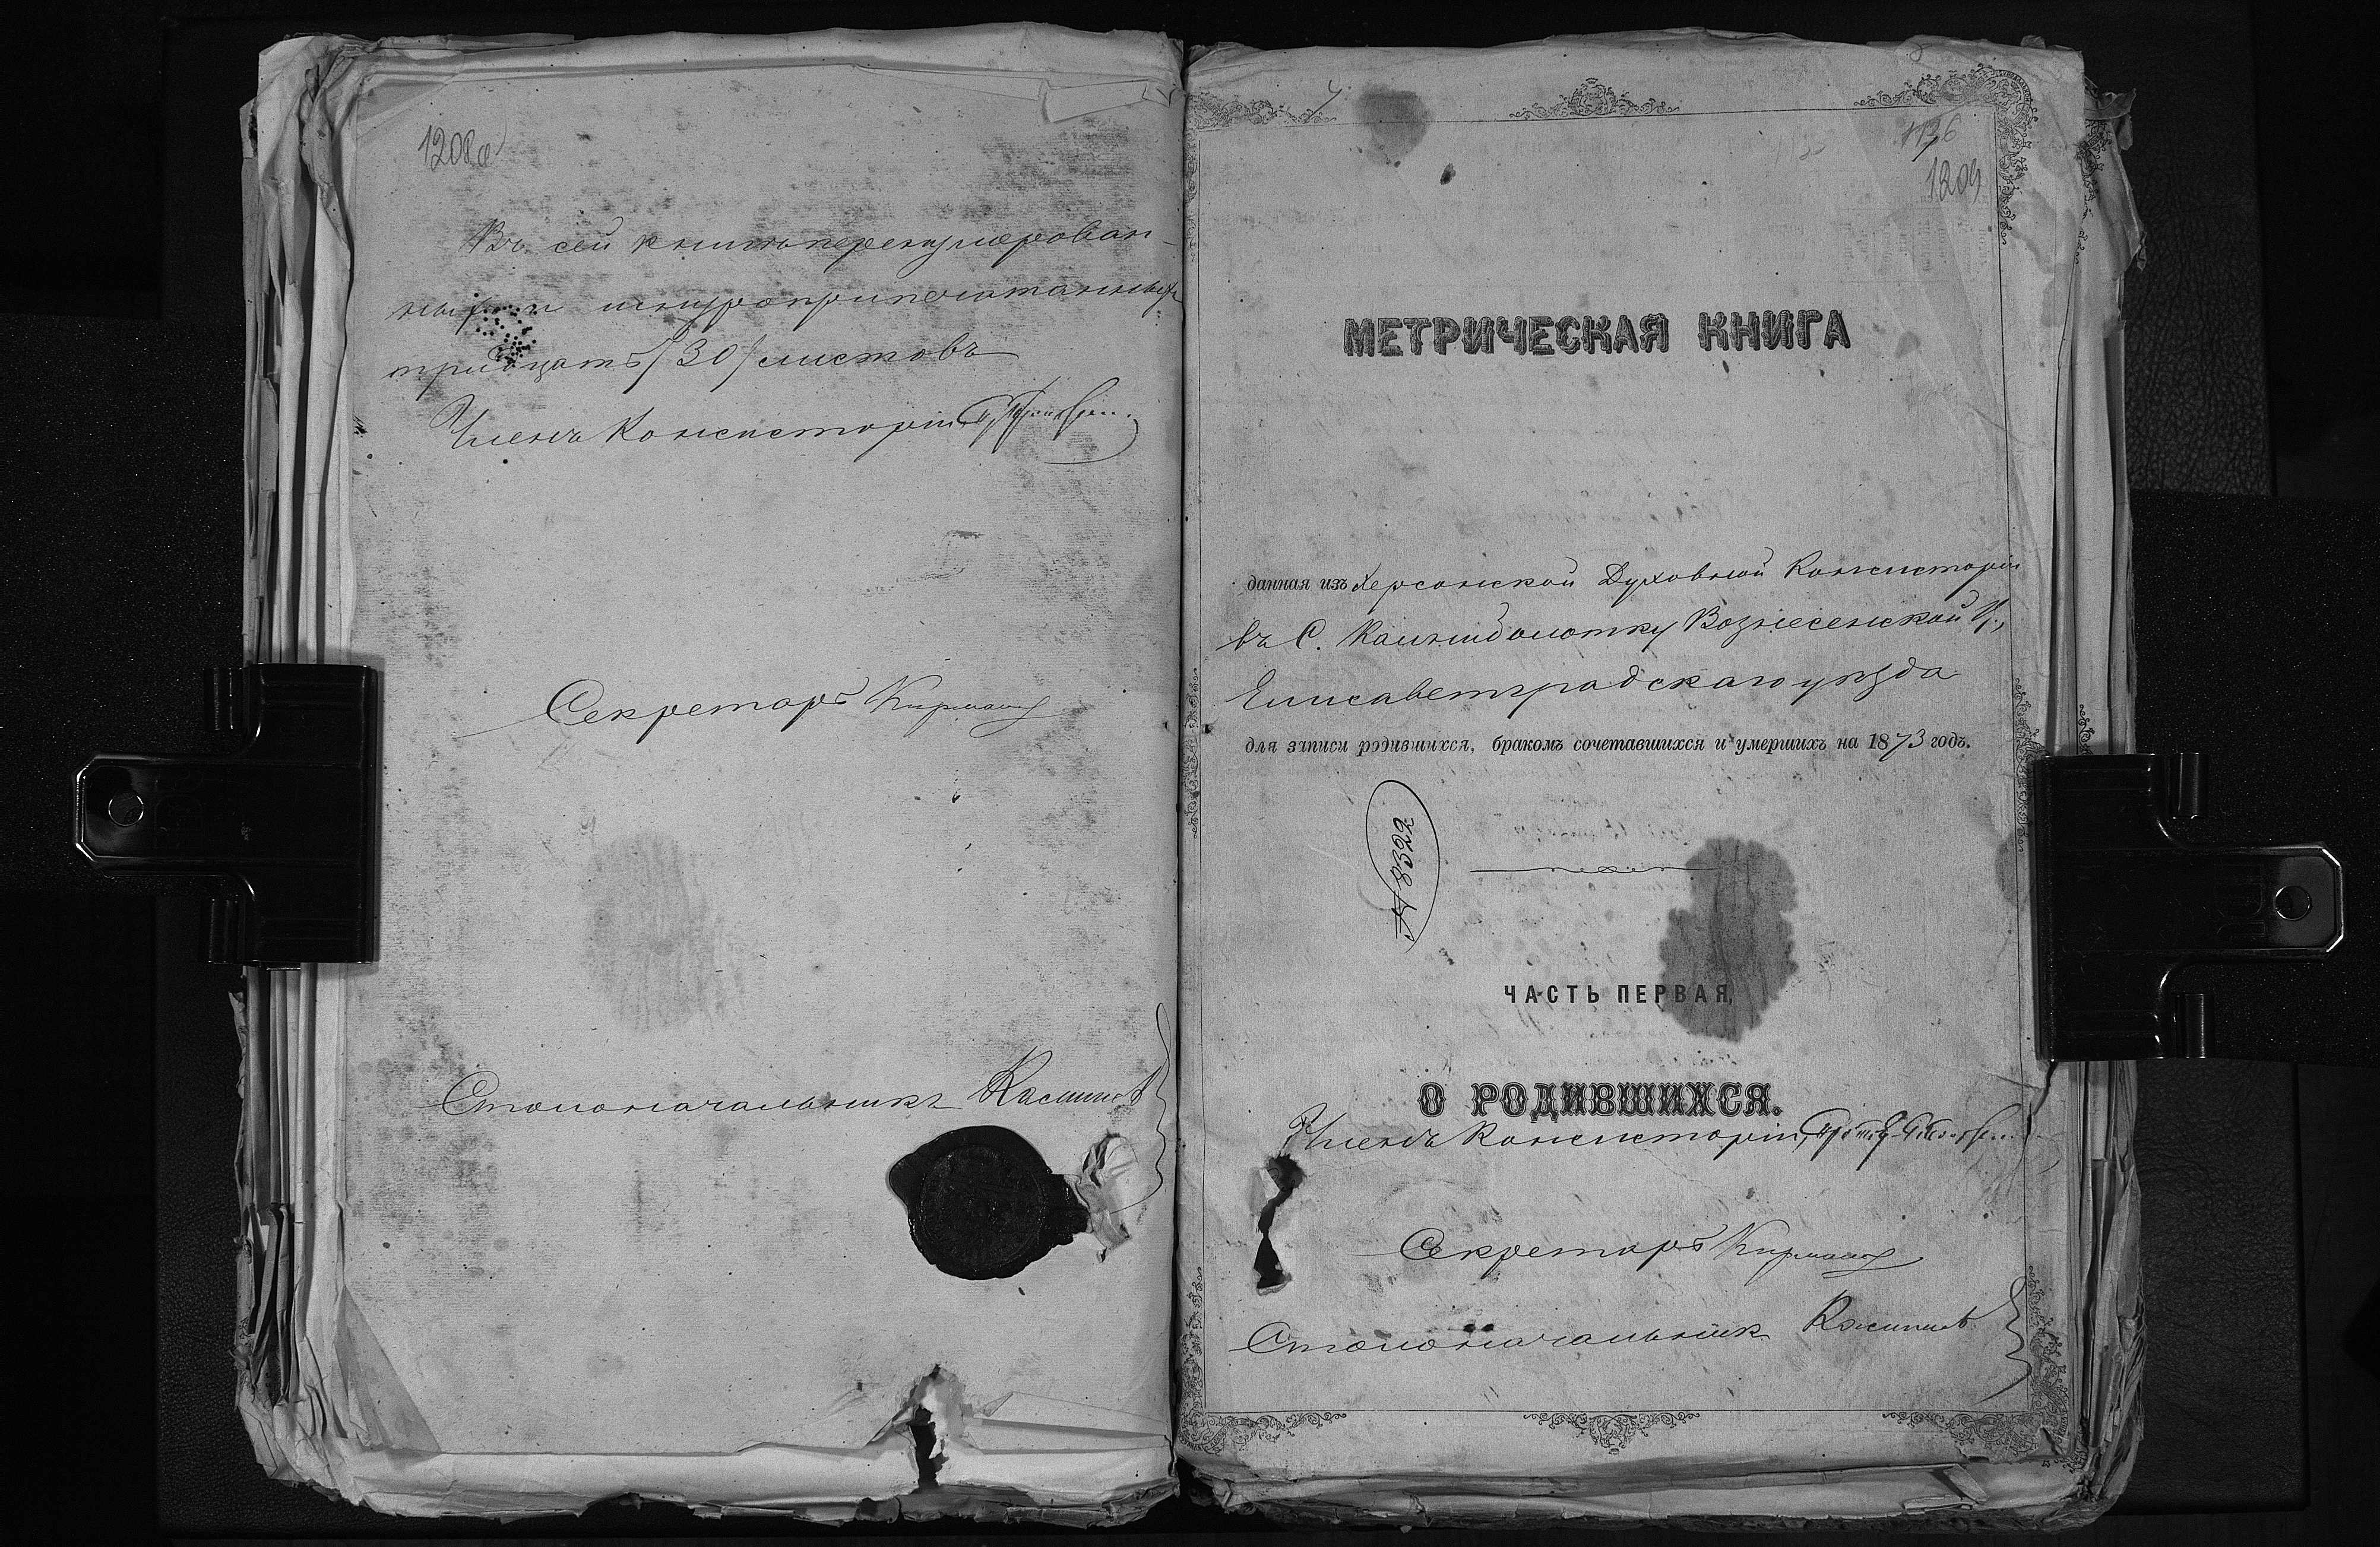 1208а
Въ сей книгѣ перенумерован-
ныхъ и шнуроприпечатанныхъ
тридцать /30/ листовъ
Членъ Консисторіи
Секретарь
Столоначальникъ
1136
1209
МЕТРИЧЕСКАЯ КНИГА
данная изъ Херсонской Духовной Консисторіи
въ С. Вознесенской Ц.,
Елисаветградскаго уѣзда
для записи родившихся, бракомъ сочетавшихся и умершихъ на 1873 годъ.
№ 8322
ЧАСТЬ ПЕРВАЯ,
О РОДИВШИХСЯ.
Членъ Консисторіи,
Секретарь
Столоначальник